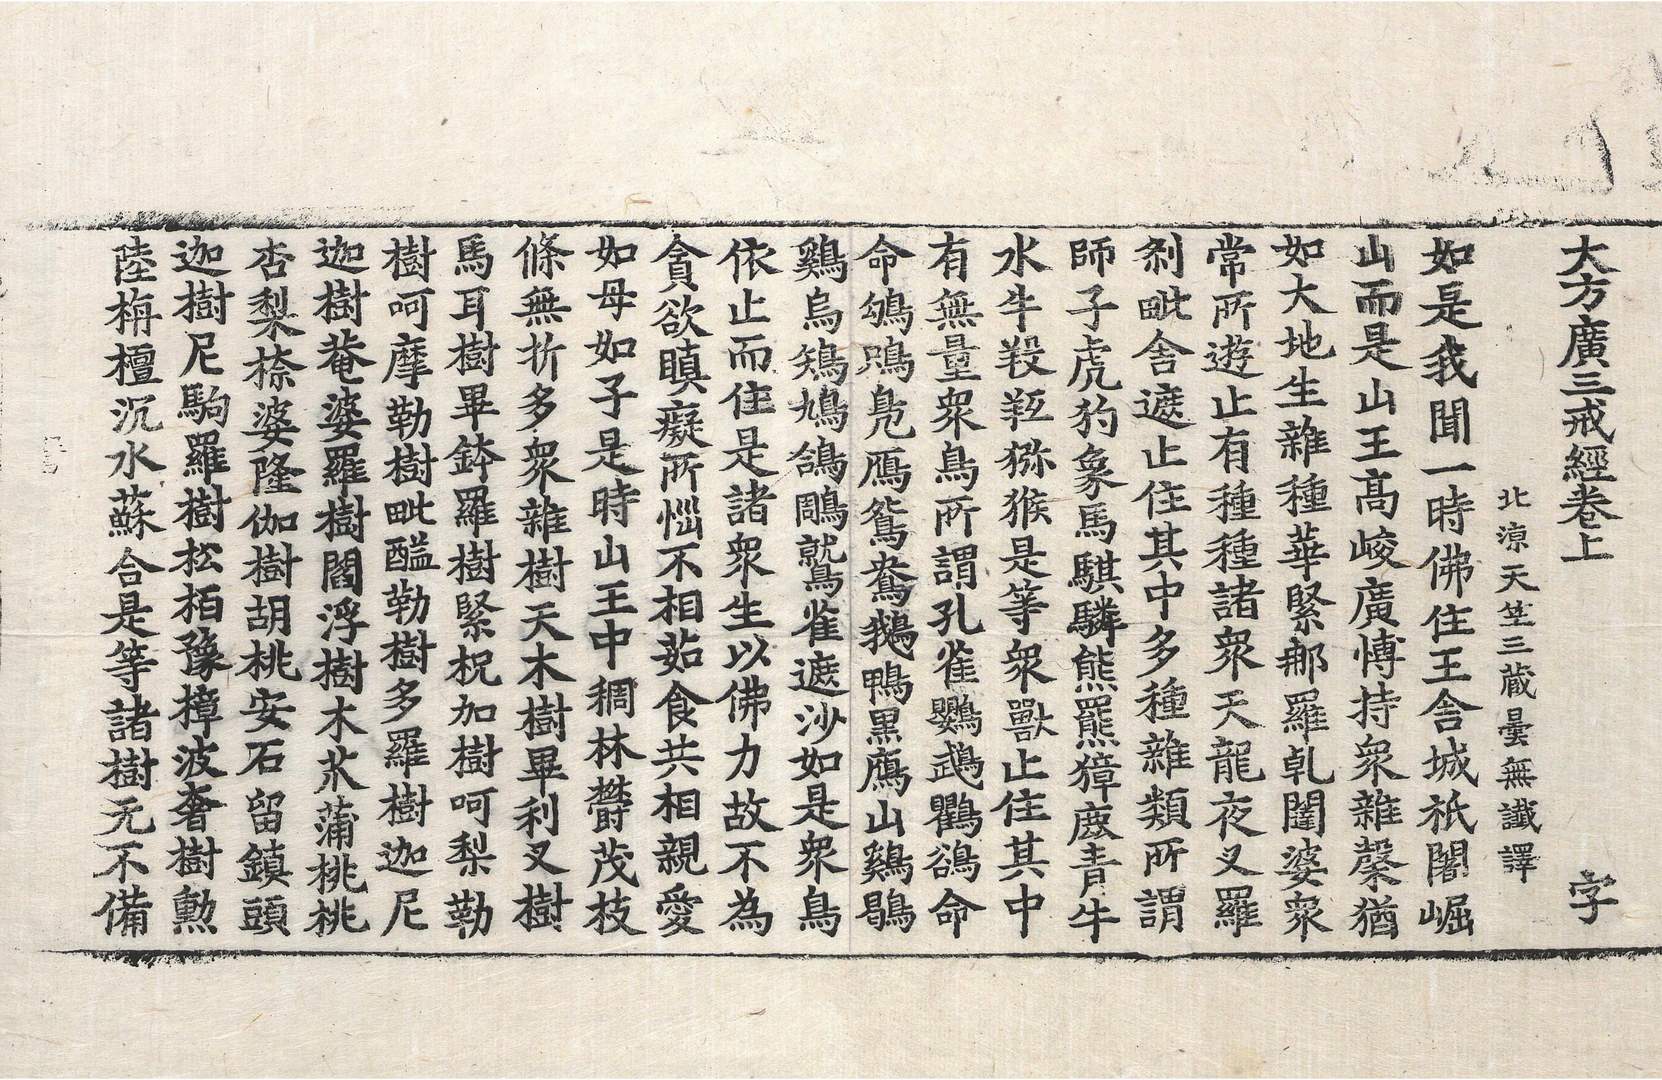 大方廣三戒經卷上 字
北涼天竺三藏曇無讖譯
如是我聞一時佛住王舍城祇闍崛
山而是山王高峻廣愽持衆雜馨猶
如大地生雜種華緊那羅乹闥婆衆
常所遊止有種種諸衆天龍夜叉羅
剎毗舍遮止住其中多種雜類所謂
師子虎豹象馬騏驎熊羆獐鹿青牛
水牛羖羝猕猴是等衆獸止住其中
有無量衆鳥所謂孔雀鸚鵡鸜鵒命
命鴝鴻鳧鴈鴛鴦鵝鴨黒鷹山鷄鶡
鷄烏鴙鳩鴿鵰鷲雀遮沙如是衆鳥
依止而住是諸衆生以佛力故不為
貪欲瞋癡所惱不相茹食共相親愛
如母如子是時山王中稠林欝茂枝
條無折多衆雜樹天木樹畢利叉樹
馬耳樹畢鉢羅樹緊柷加樹呵梨勒
樹呵摩勒樹毗醯勒樹多羅樹迦尼
迦樹菴婆羅樹閻浮樹木苽蒲桃桃
杏梨㮈婆隆伽樹胡桃安石留鎮頭
迦樹尼駒羅樹松栢豫樟波奢樹勲
陸栴檀沉水蘇合是等諸樹无不備